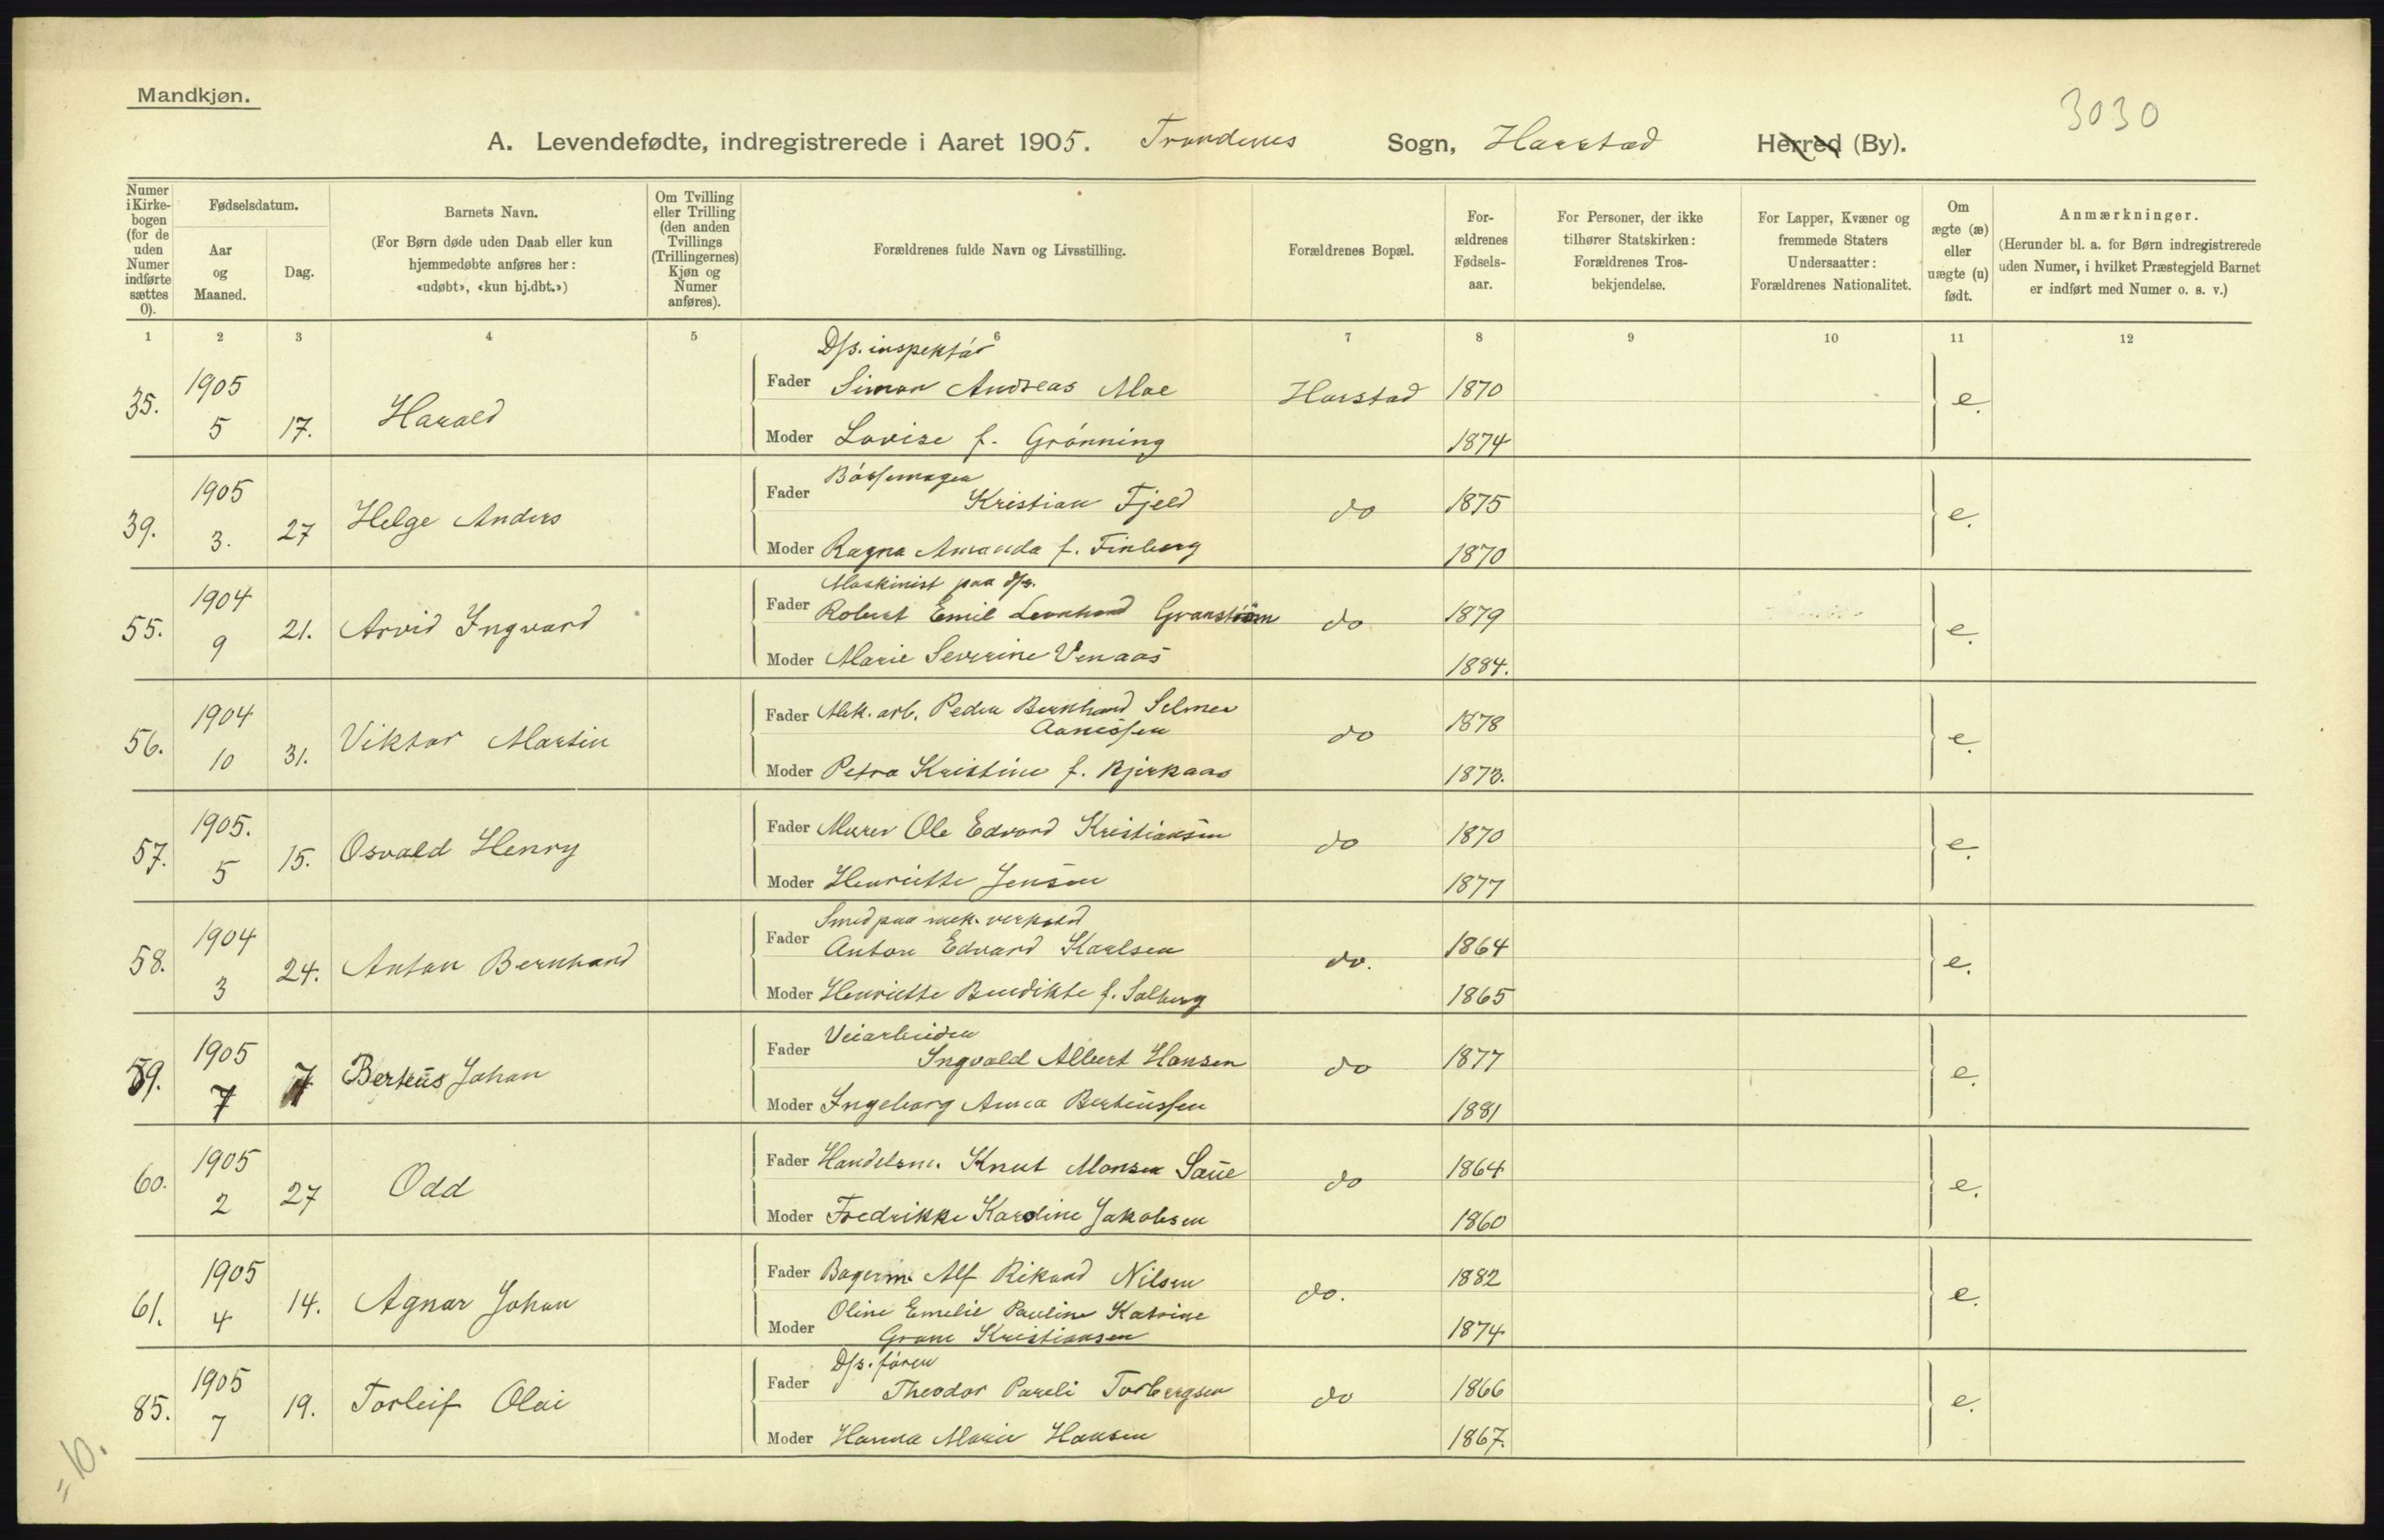 Mandkjøn.
3030
A. Levendefødte, indregistrerede i Aaret 1905. Trondenes Sogn, Harstad Herred (By).
Numer i Kirke-bogen (for de uden Numer indførte sættes 0).
Fødselsdatum.
Aar og Maaned.
Dag.
Barnets Navn.
(For Børn døde uden Daab eller kun
hjemmedøbte anføres her:
«udøbt», «kun hj.dbt.»)
Om Tvilling
eller Trilling
(den anden
Tvillings
(Trillingernes)
Kjøn og
Numer
anføres).
Forældrenes fulde Navn og Livsstilling.
Forældrenes Bopæl.
For-
ældrenes
Fødsels-
aar.
For Personer, der ikke
tilhører Statskirken:
Forældrenes Tros-
bekjendelse.
For Lapper, Kvæner og
fremmede Staters
Undersaatter:
Forældrenes Nationalitet.
Om
ægte (æ)
eller
uægte (u)
født.
Anmærkninger.
(Herunder bl. a. for Børn indregistrerede
uden Numer, i hvilket Præstegjeld Barnet
er indført med Numer o. s. v.)
1 2 3 4 5 6 7 8 9 10 11 12
D/s. inspektør
35. 1905 5 17. Harald Fader Simon Andreas Moe Harstad 1870 e.
Moder Lovise f. Grønning 1874
Bøssemager
39. 1905 3. 27 Helge Anders Fader Kristian Fjeld do 1875 e.
Moder Ragna Amanda f. Finberg 1870
Maskinist paa d/s.
55. 1904 9 21. Arvid Ingvard Fader Robert Emil Leonhard Granström do 1879 e.
Moder Marie Severine Venaas 1884.
56. 1904 10 31. Viktor Martin Fader Mek. arb. Peder Bernhard Selmer
Aanessen do 1878 e.
Moder Petra Kristine f. Bjerkaas 1873.
57. 1905. 5 15. Osvald Henry Fader Murer Ole Edvard Kristiansen do 1870 e.
Moder Henriette Jensen 1877
Smed paa mek. verksted
58. 1904 3 24. Anton Bernhard Fader Anton Edvard Karlsen do. 1864 e.
Moder Henriette Benedikte f. Solberg 1865
Veiarbeider
59. 1905 7 7 Berteus Johan Fader Ingvald Albert Hansen do 1877 e.
Moder Ingeborg Anna Berteussen 1881
60. 1905 2 27 Odd Fader Handelsm. Knut Monsen Saue do 1864 e.
Moder Fredrikke Karoline Jakobsen 1860
61. 1905 4 14. Agnar Johan Fader Bagerm. Alf Rikard Nilsen do. 1882 e.
Moder Oline Emelie Pauline Katrine
Grane Kristiansen 1874
D/s. fører
85. 1905 7 19. Torleif Olai Fader Theodor Pareli Torbergsen do 1866 e.
Moder Hanna Marie Hansen 1867.
= 10.